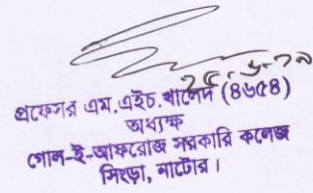 ২৫-৬-২৯
প্রফেসর এম.এইচ.খালেদ (৪৬৫৪)
অধ্যক্ষ
গোল-ই-আফরোজ সরকারি কলেজ
সিংড়া, নাটোর।